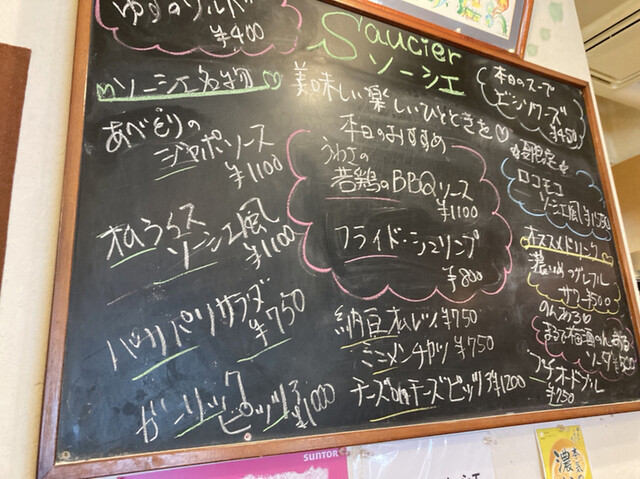 ゆずソルベ
¥400
Saucier
ソーシエ
ソーシエ名物
美味しい楽しいひとときを
あべどりの
ジャポソース
¥1100
オムライス
ソーシエ風
¥1100
パリパリサラダ
¥750
ガーリック
ピッツァ
¥1000
本日のおすすめ
うわさの
若鶏のBBQソース
¥1100
フライド・シュリンプ
¥800
納豆オムレツ ¥750
ミニメンチカツ ¥750
チーズonチーズピッツァ ¥1200
本日のスープ
ビシソワーズ
¥450
夏限定
ロコモコ
ソーシエ風
オススメドリンク
濃いめのグレフル
サワー ¥500
のんある
まるで梅酒のんある
ソーダ
プチオードブル
¥750
SUNTORY
濃